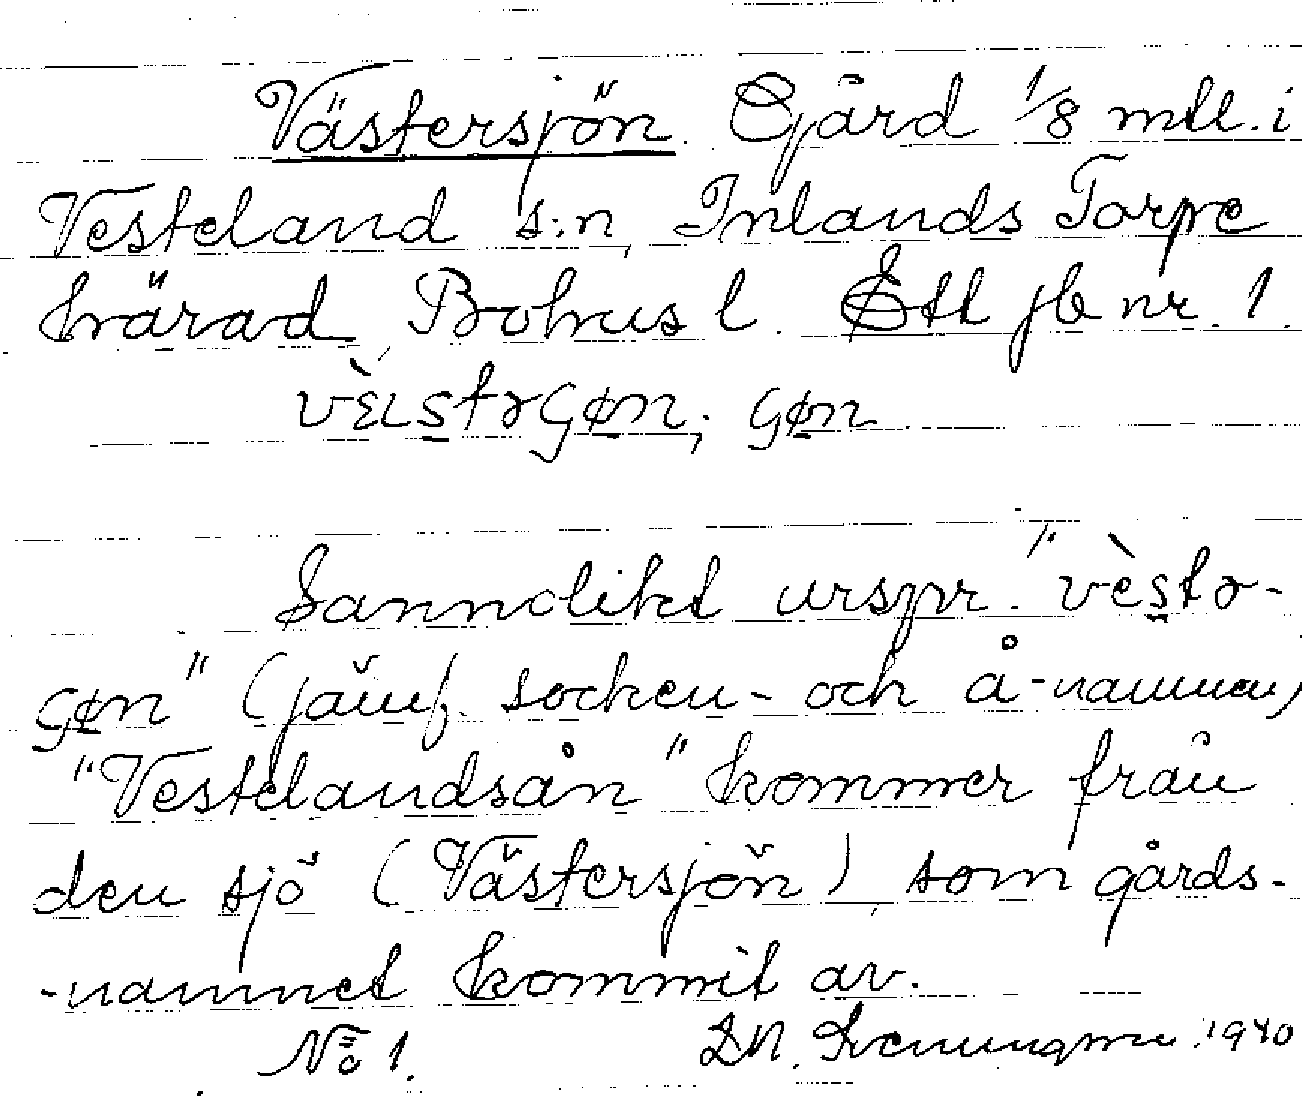 Västersjön. Gård 1/8 mtl. i
Vesteland s:n, Inlands Torpe
härad, Bohus l. Ett jb nr. 1.
vɛ̀ıstərɢøn; ɢøn
Sannolikt urspr. "vèstər-
ɢøn" (jämf. socken- och å-namnen)
"Vestelandsån" kommer från
den sjö (Västersjön), som gårds-
-namnet kommit av.
No 1. 1940